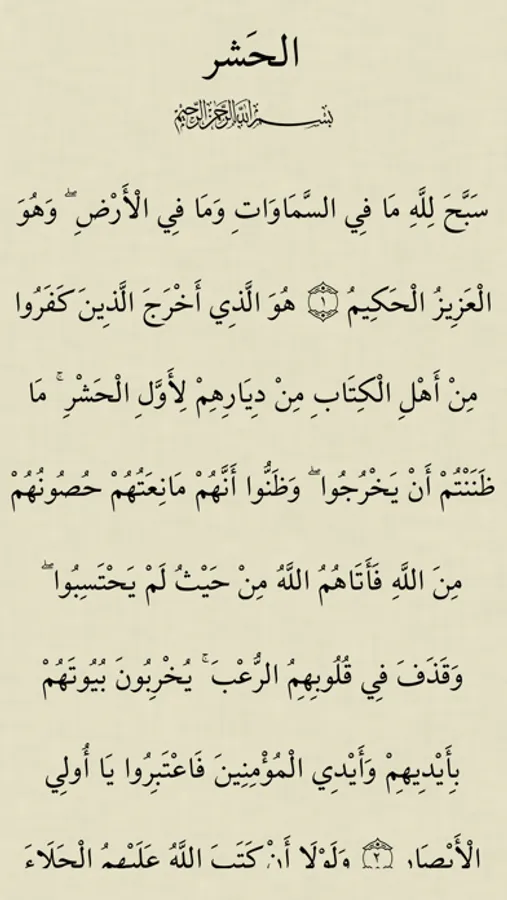 الحَشر
بِسْمِ اللَّهِ الرَّحْمَٰنِ الرَّحِيمِ
سَبَّحَ لِلَّهِ مَا فِي السَّمَاوَاتِ وَمَا فِي الْأَرْضِ ۖ وَهُوَ
الْعَزِيزُ الْحَكِيمُ ﴿١﴾ هُوَ الَّذِي أَخْرَجَ الَّذِينَ كَفَرُوا
مِنْ أَهْلِ الْكِتَابِ مِنْ دِيَارِهِمْ لِأَوَّلِ الْحَشْرِ ۚ مَا
ظَنَنْتُمْ أَنْ يَخْرُجُوا ۖ وَظَنُّوا أَنَّهُمْ مَانِعَتُهُمْ حُصُونُهُمْ
مِنَ اللَّهِ فَأَتَاهُمُ اللَّهُ مِنْ حَيْثُ لَمْ يَحْتَسِبُوا ۖ
وَقَذَفَ فِي قُلُوبِهِمُ الرُّعْبَ ۚ يُخْرِبُونَ بُيُوتَهُمْ
بِأَيْدِيهِمْ وَأَيْدِي الْمُؤْمِنِينَ فَاعْتَبِرُوا يَا أُولِي
الْأَبْصَارِ ﴿٢﴾ وَلَوْلَا أَنْ كَتَبَ اللَّهُ عَلَيْهِمُ الْجَلَاءَ